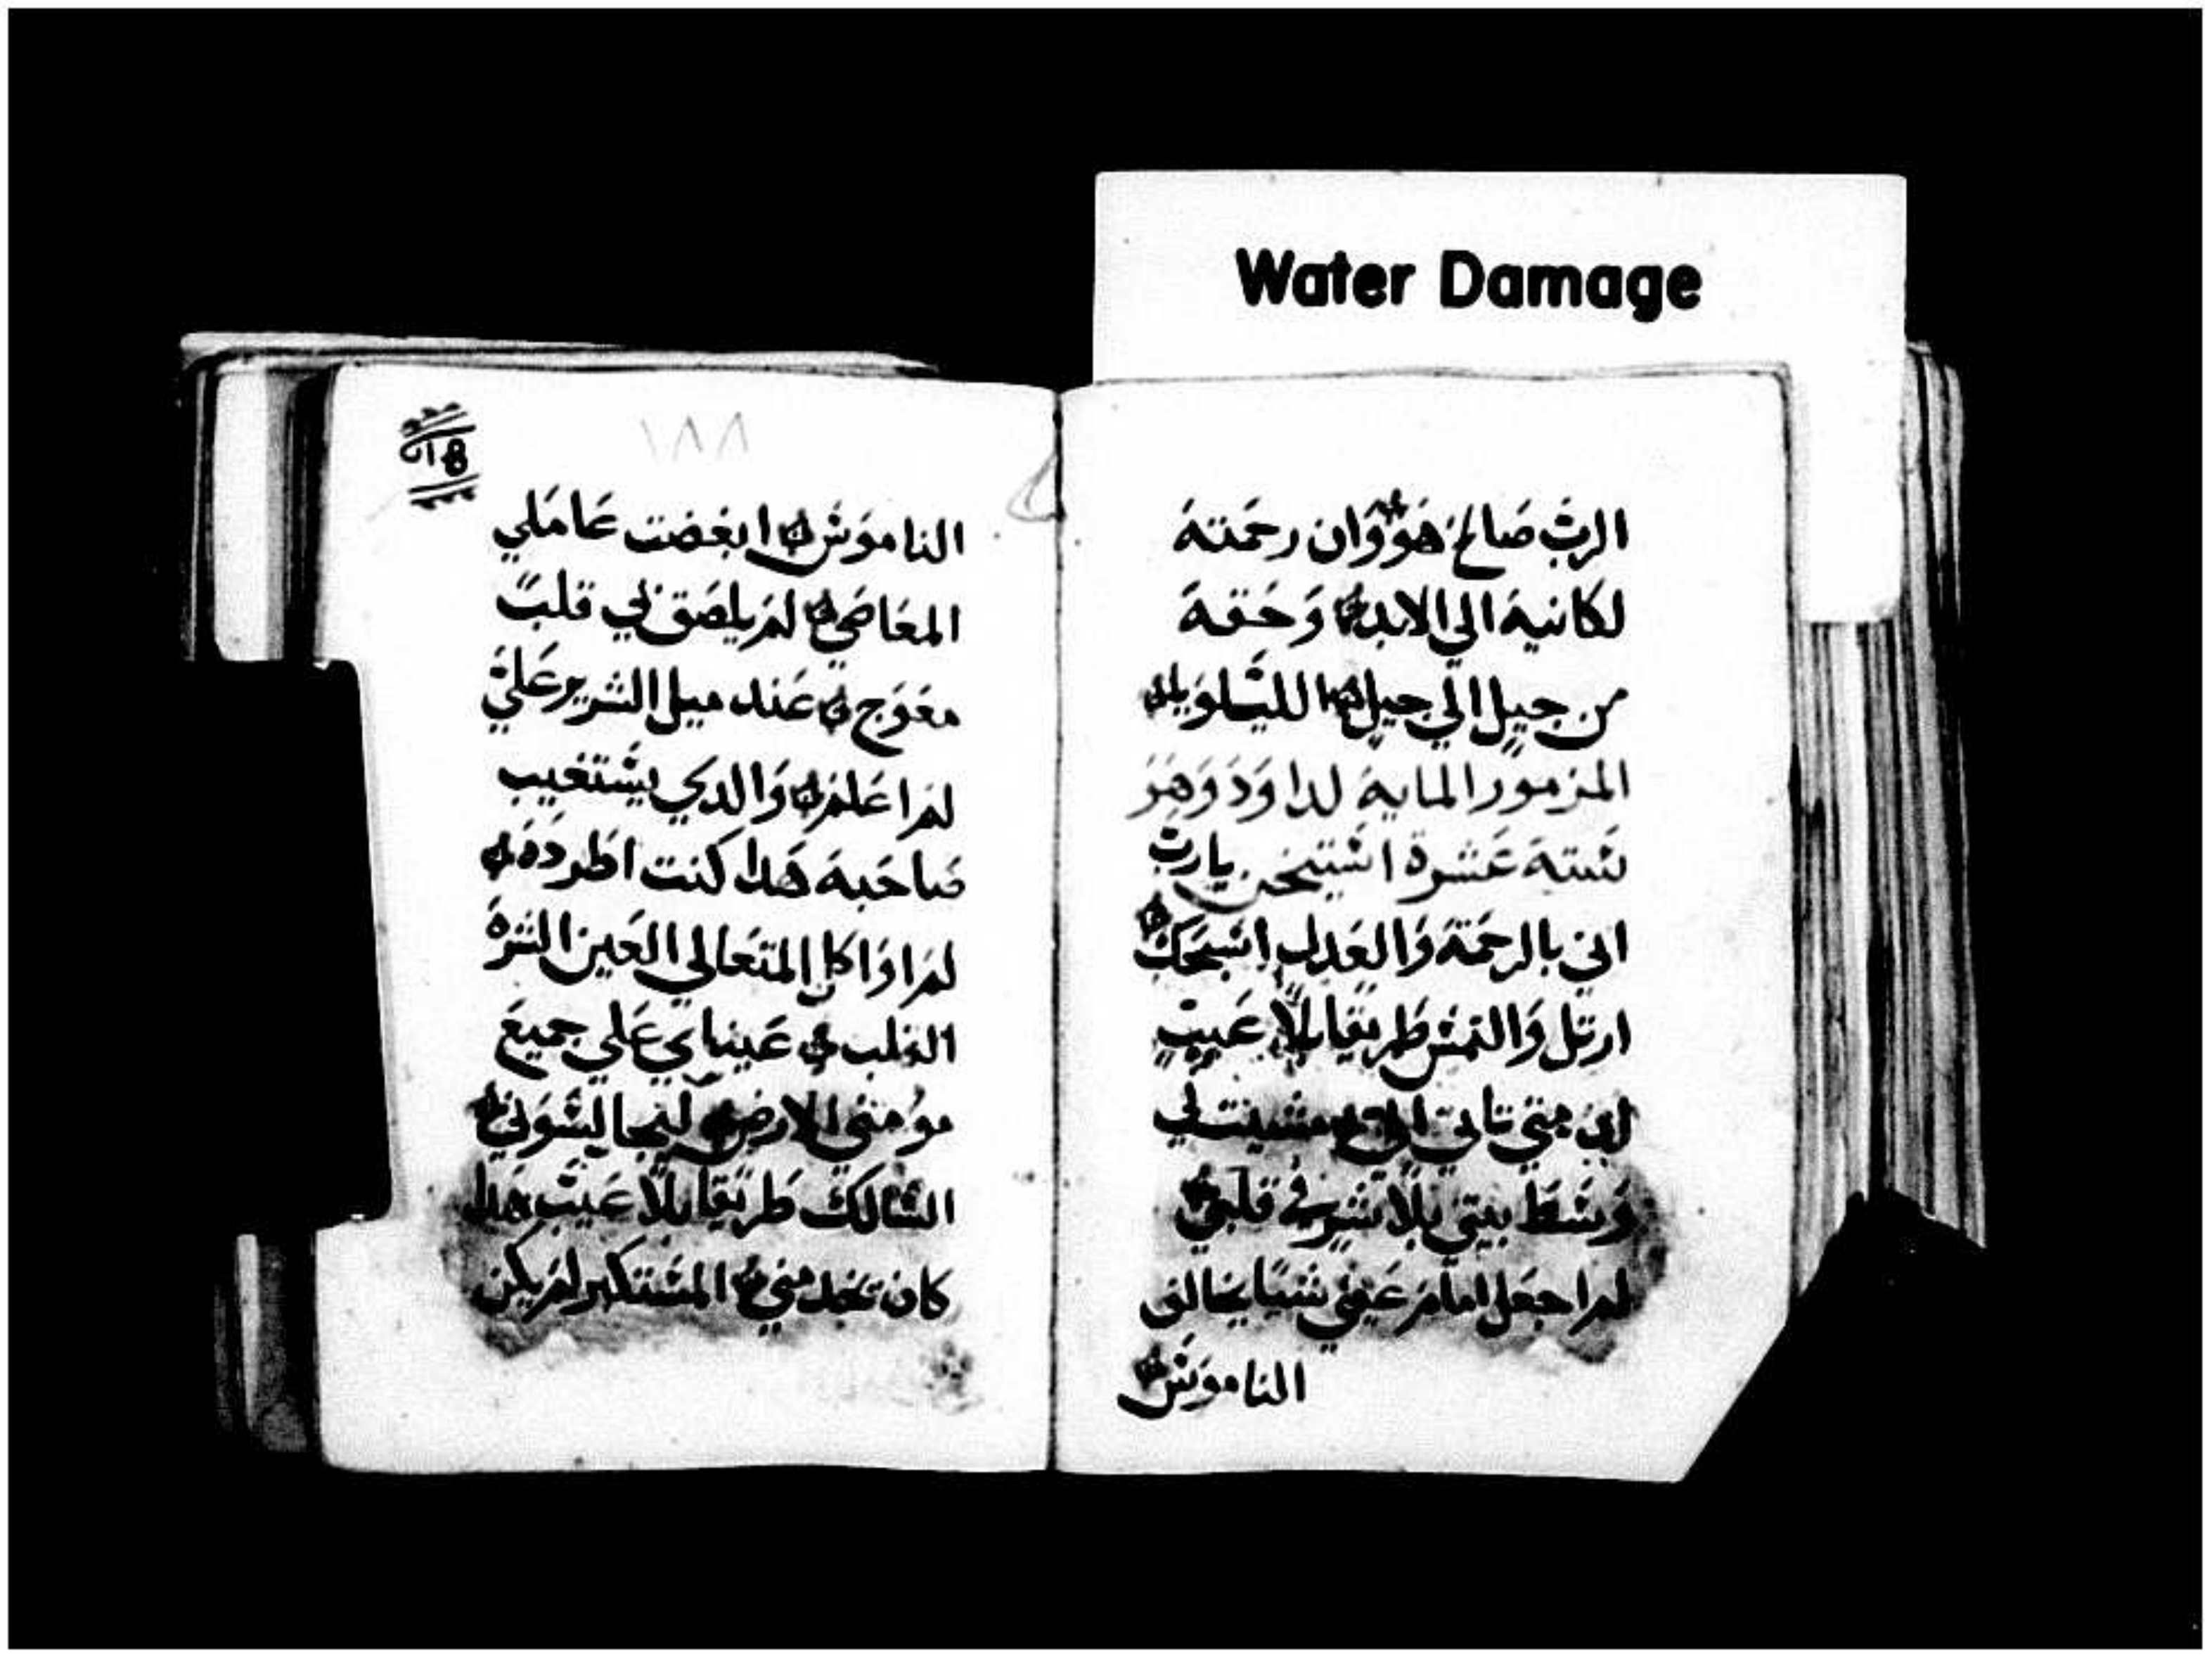 Water Damage
الربّ صَالح هَوَ وَان رحمَتهَ
لكَانيهَ الي الابد وَحَقهَ
من جيلٍ الي جيلٍ الليلويا
المزمور المايهَ لداوَدَ وَهَوَ
ستتهَ عَشرة استيخن يارب
اني بالرحمَة وَالعَدل اسبحَك
ارتل وَالتمس طريقا بلاَ عَيبٍ
اين متي تاتي الي مشيت في
وَسَط بيتي بلا شر في قلبي
لمَ اجعَل امامَ عَيني شيا يخالف
الناموَس
١٨٨
الناموَس ابغضت عَاملي
المعَاصي لمَ يلصَق بي قلبَ
معَوَج عَند ميل الشرير عَليَّ
لمَ اعَلمَ وَالدي يستغيب
صَاحَبهَ هَدا كنت اطردَه
لمَ اوَاكل المتعَالي العَين الشرهَ
القلب عَيناي عَلي جميعَ
موُمني الارض ليجالسوَني
السَالك طريقا بلا عَيب هَدا
كان يخدمني المستكبر لمَ يكن